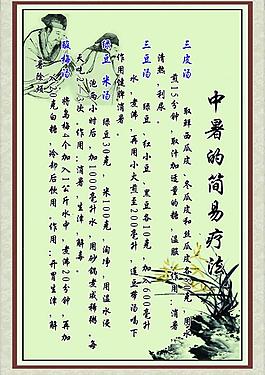 中暑的简易疗法
三皮汤
取鲜西瓜皮、冬瓜皮和丝瓜皮各50克,用水
煎15分钟,取汁加适量的糖,温服。作用:消暑
清热,利尿。
三豆汤
绿豆、红小豆、黑豆各10克,加入600毫升
水,煮沸,再用小火煎至200毫升,连豆带汤喝下
作用健脾消暑。
绿豆米汤
绿豆30克,米100克,淘净,用温水浸
泡两小时后,加1000毫升水,用砂锅煮成稀粥,每
天吃2-3次。作用:消暑,生津,解毒。
酸梅汤
将乌梅4个加入1公斤水中,煮沸20分钟,再加
入20克白糖,冷却后饮用。作用:开胃生津,解
暑除烦。